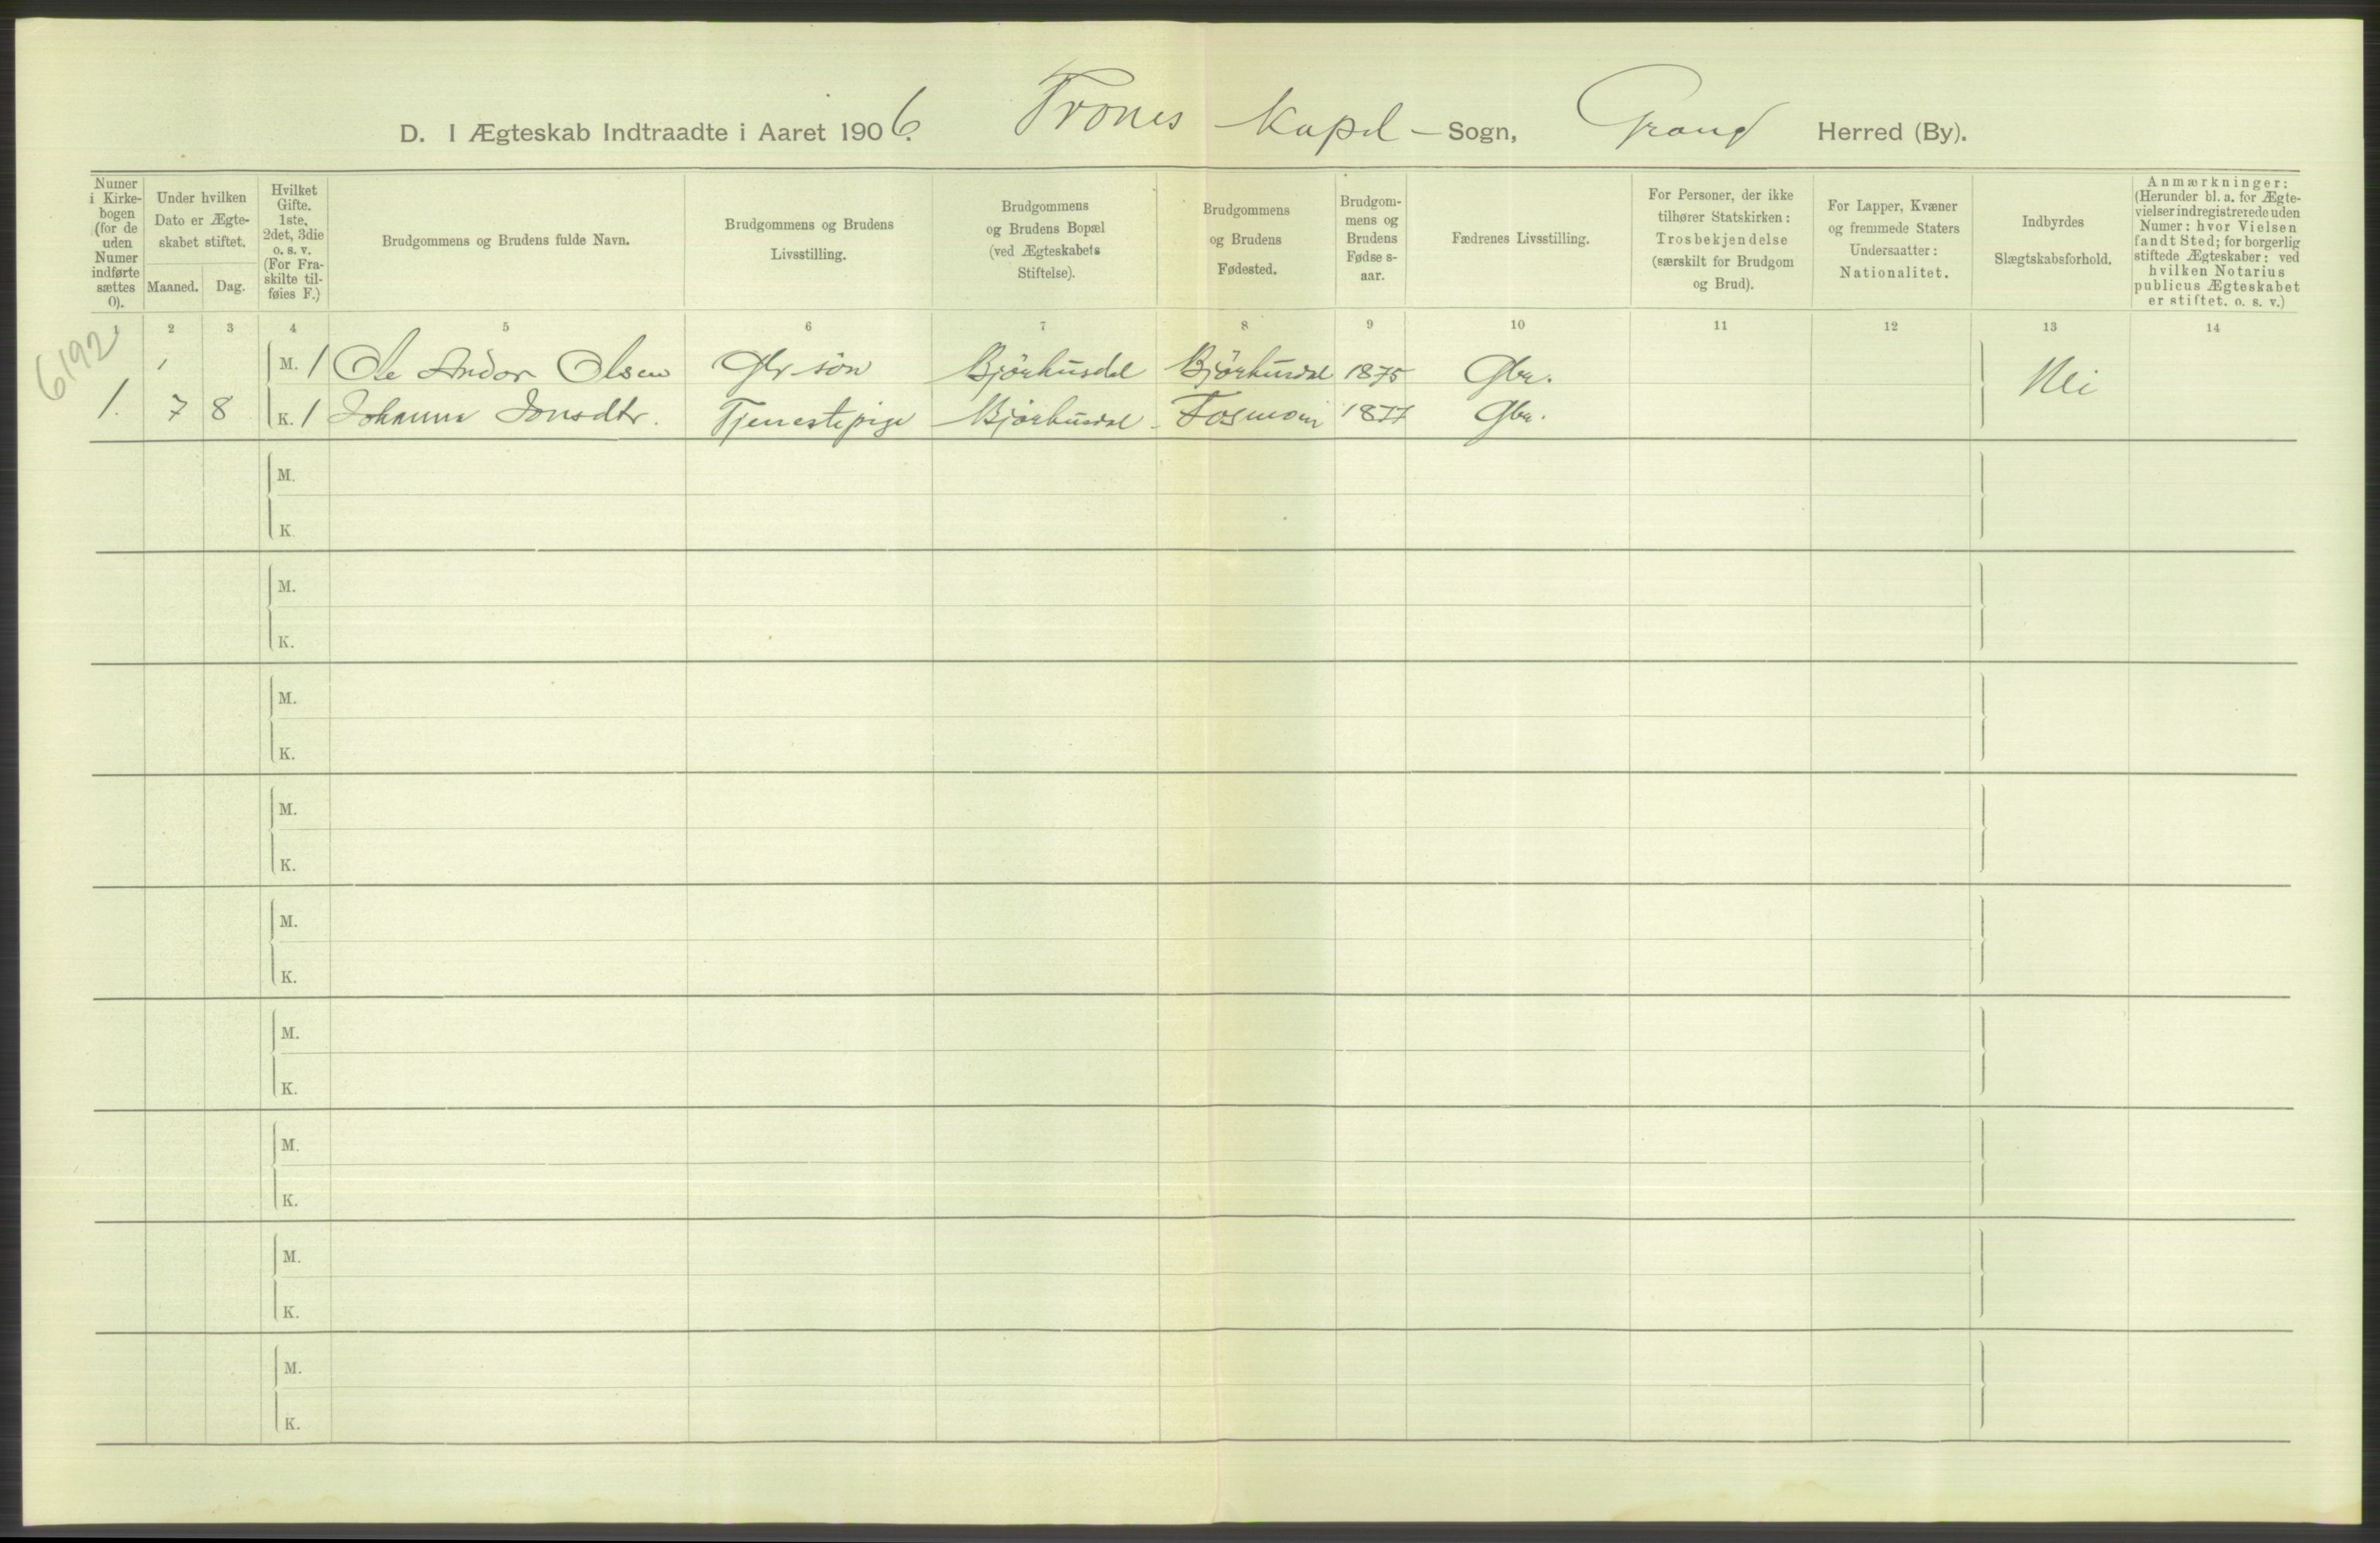 D. I Ægteskab Indtraadte i Aaret 1906. Trones Kapel - Sogn, Grong Herred (By).
Numer i Kirkebogen (for de uden Numer indførte sættes 0).
Under hvilken Dato er Ægteskabet stiftet.
Maaned. Dag.
Hvilket Gifte. 1ste, 2det, 3die o. s. v. (For Fraskilte tilføies F.)
Brudgommens og Brudens fulde Navn.
Brudgommens og Brudens Livsstilling.
Brudgommens og Brudens Bopæl (ved Ægteskabets Stiftelse).
Brudgommens og Brudens Fødested.
Brudgommens og Brudens Fødselsaar.
Fædrenes Livsstilling.
For Personer, der ikke tilhører Statskirken: Trosbekjendelse (særskilt for Brudgom og Brud).
For Lapper, Kvæner og fremmede Staters Undersaatter: Nationalitet.
Indbyrdes Slægtskabsforhold.
Anmærkninger: (Herunder bl. a. for Ægtevielser indregistrerede uden Numer: hvor Vielsen fandt Sted; for borgerlig stiftede Ægteskaber: ved hvilken Notarius publicus Ægteskabet er stiftet. o. s. v.)
1 2 3 4 5 6 7 8 9 10 11 12 13 14
6192
M. 1 Ole Andor Olsen Gbr søn Bjørhusdal Bjørhusdal 1875 Gbr. Nei
1. 7 8 K. 1 Johanna Jonsdtr. Tjenestepige Bjørhusdal Fosmoin 1877 Gbr.
M.
K.
M.
K.
M.
K.
M.
K.
M.
K.
M.
K.
M.
K.
M.
K.
M.
K.